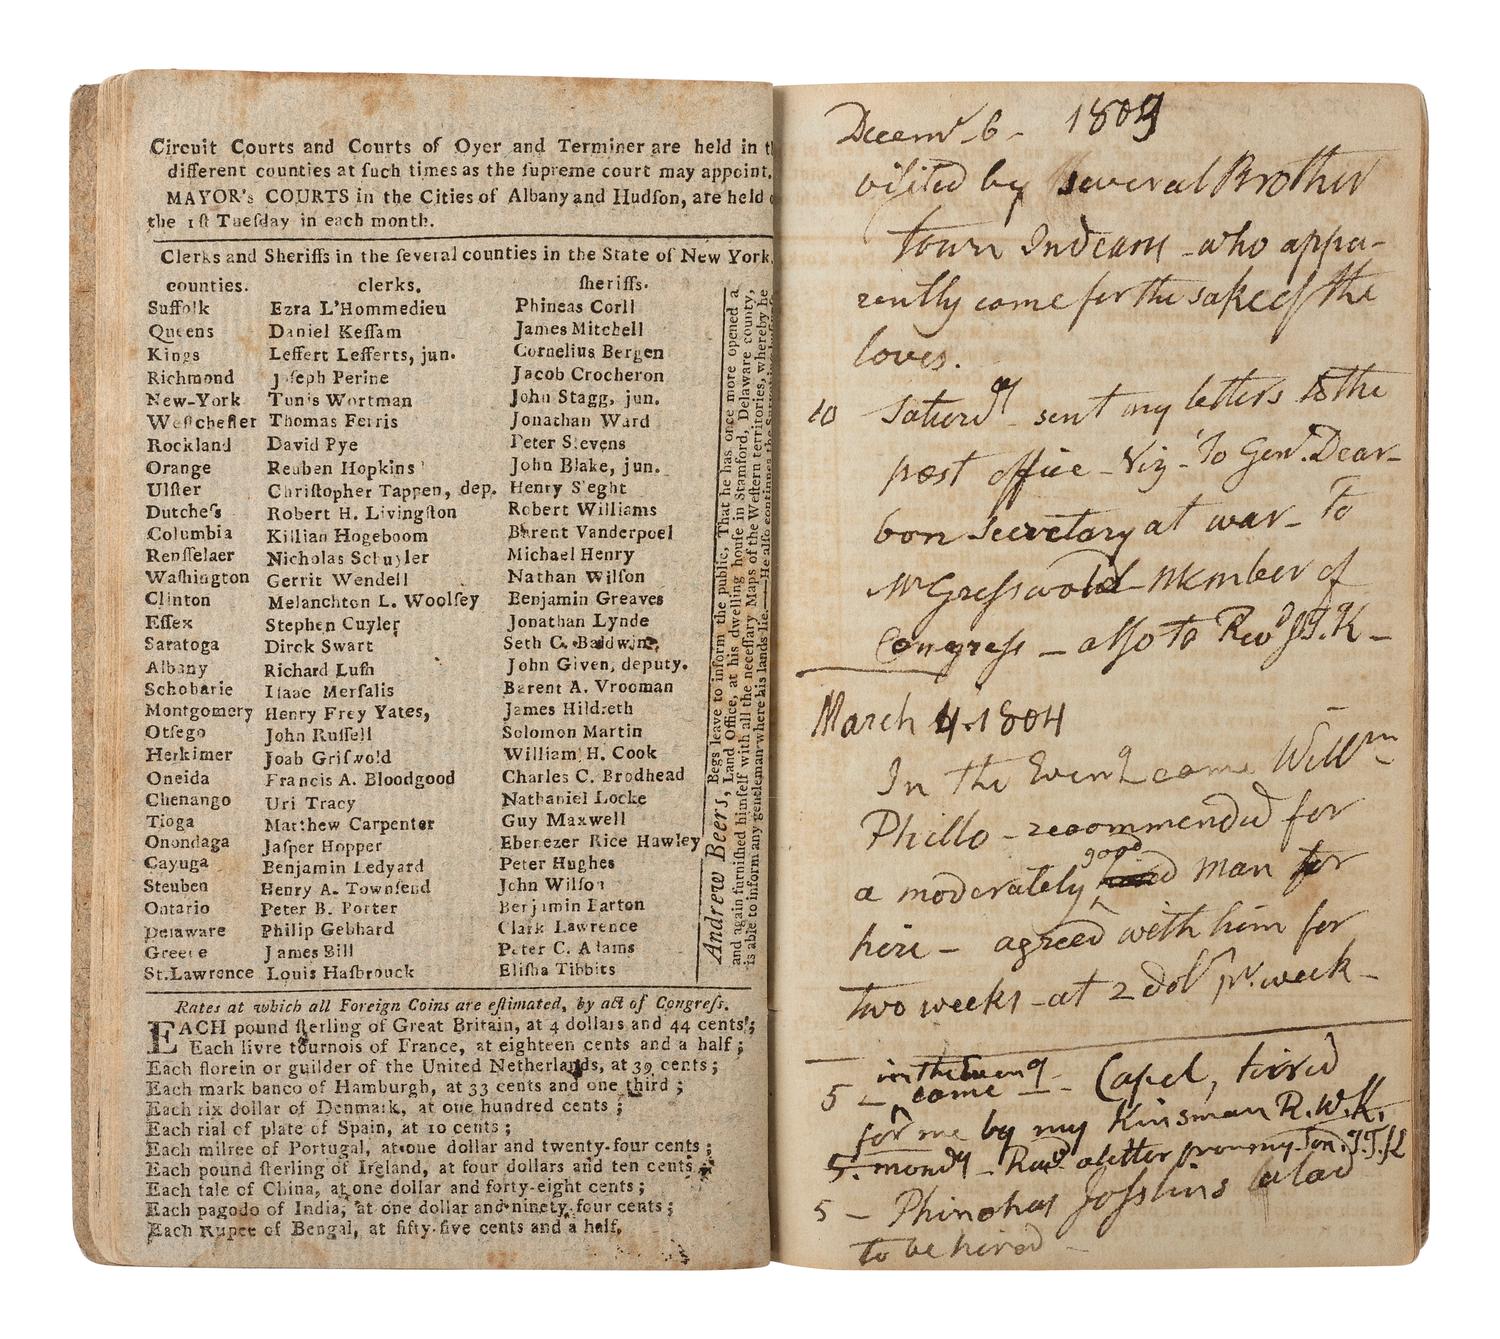 Circuit Courts and Courts of Oyer and Terminer are held in th
different counties at ſuch times as the ſupreme court may appoint.
MAYOR's COURTS in the Cities of Albany and Hudſon, are held
the 1ſt Tueſday in each month.
Clerks and Sheriffs in the ſeveral counties in the State of New York.
counties. clerks. ſheriffs.
Suffolk Ezra L'Hommedieu Phineas Corll
Queens Daniel Keſſam James Mitchell
Kings Leffert Lefferts, jun. Cornelius Bergen
Richmond Joſeph Perine Jacob Crocheron
New-York Tunis Wortman John Stagg, jun.
Weſtcheſter Thomas Ferris Jonathan Ward
Rockland David Pye Peter Stevens
Orange Reuben Hopkins John Blake, jun.
Ulſter Chriſtopher Tappen, dep. Henry Sleght
Dutcheſs Robert H. Livingſton Robert Williams
Columbia Killian Hogeboom Barent Vanderpoel
Renſſelaer Nicholas Schuyler Michael Henry
Waſhington Gerrit Wendell Nathan Wilſon
Clinton Melanchton L. Woolſey Benjamin Greaves
Eſſex Stephen Cuyler Jonathan Lynde
Saratoga Dirck Swart Seth C. Baldwin,
Albany Richard Luſh John Given, deputy.
Schoharie Iſaac Merſalis Barent A. Vrooman
Montgomery Henry Frey Yates, James Hildreth
Otſego John Ruſſell Solomon Martin
Herkimer Joab Griſwold William H. Cook
Oneida Francis A. Bloodgood Charles C. Brodhead
Chenango Uri Tracy Nathaniel Locke
Tioga Matthew Carpenter Guy Maxwell
Onondaga Jaſper Hopper Ebenezer Rice Hawley
Cayuga Benjamin Ledyard Peter Hughes
Steuben Henry A. Townſend John Wilſon
Ontario Peter B. Porter Benjamin Barton
Delaware Philip Gebhard Clark Lawrence
Greene James Bill Peter C. Adams
St. Lawrence Louis Haſbrouck Eliſha Tibbits
Andrew Beers, Begs leave to inform the public, That he has once more opened a
Land Office, at his dwelling houſe in Stamford, Delaware county,
and again furniſhed himſelf with all the neceſſary Maps of the Weſtern territories, whereby he
is able to inform any gentleman where his lands lie.——He alſo continues the
Rates at which all Foreign Coins are eſtimated, by act of Congreſs.
EACH pound ſterling of Great Britain, at 4 dollars and 44 cents;
Each livre tournois of France, at eighteen cents and a half;
Each florein or guilder of the United Netherlands, at 39 cents;
Each mark banco of Hamburgh, at 33 cents and one third;
Each rix dollar of Denmark, at one hundred cents;
Each rial of plate of Spain, at 10 cents;
Each milree of Portugal, at one dollar and twenty-four cents;
Each pound ſterling of Ireland, at four dollars and ten cents;
Each tale of China, at one dollar and forty-eight cents;
Each pagodo of India, at one dollar and ninety-four cents;
Each Rupee of Bengal, at fifty-five cents and a half.
Decemr 6 - 1803
visited by several Brother
town Indeans - who appa-
rently come for the sake of the
loves.
10 Saturdy sent my letters to the
post office - Viz - To Genl. Dear-
bon Secretary at war - To
Mr Gresswold Member of
Congress - also to Revd J.T.K -
March 4. 1804
In the Eveng came Willm
Phillo - recommended for
a moderately good man for
hire - agreed with him for
two weeks - at 2 dolr pr. week -
5 - in the Eveng came - Capel, hired
for me by my Kinsman R.W.K.
5. mondy - Recd a letter from my Son. J.T.K
5 - Phinehas Josslins a lad
to be hired -